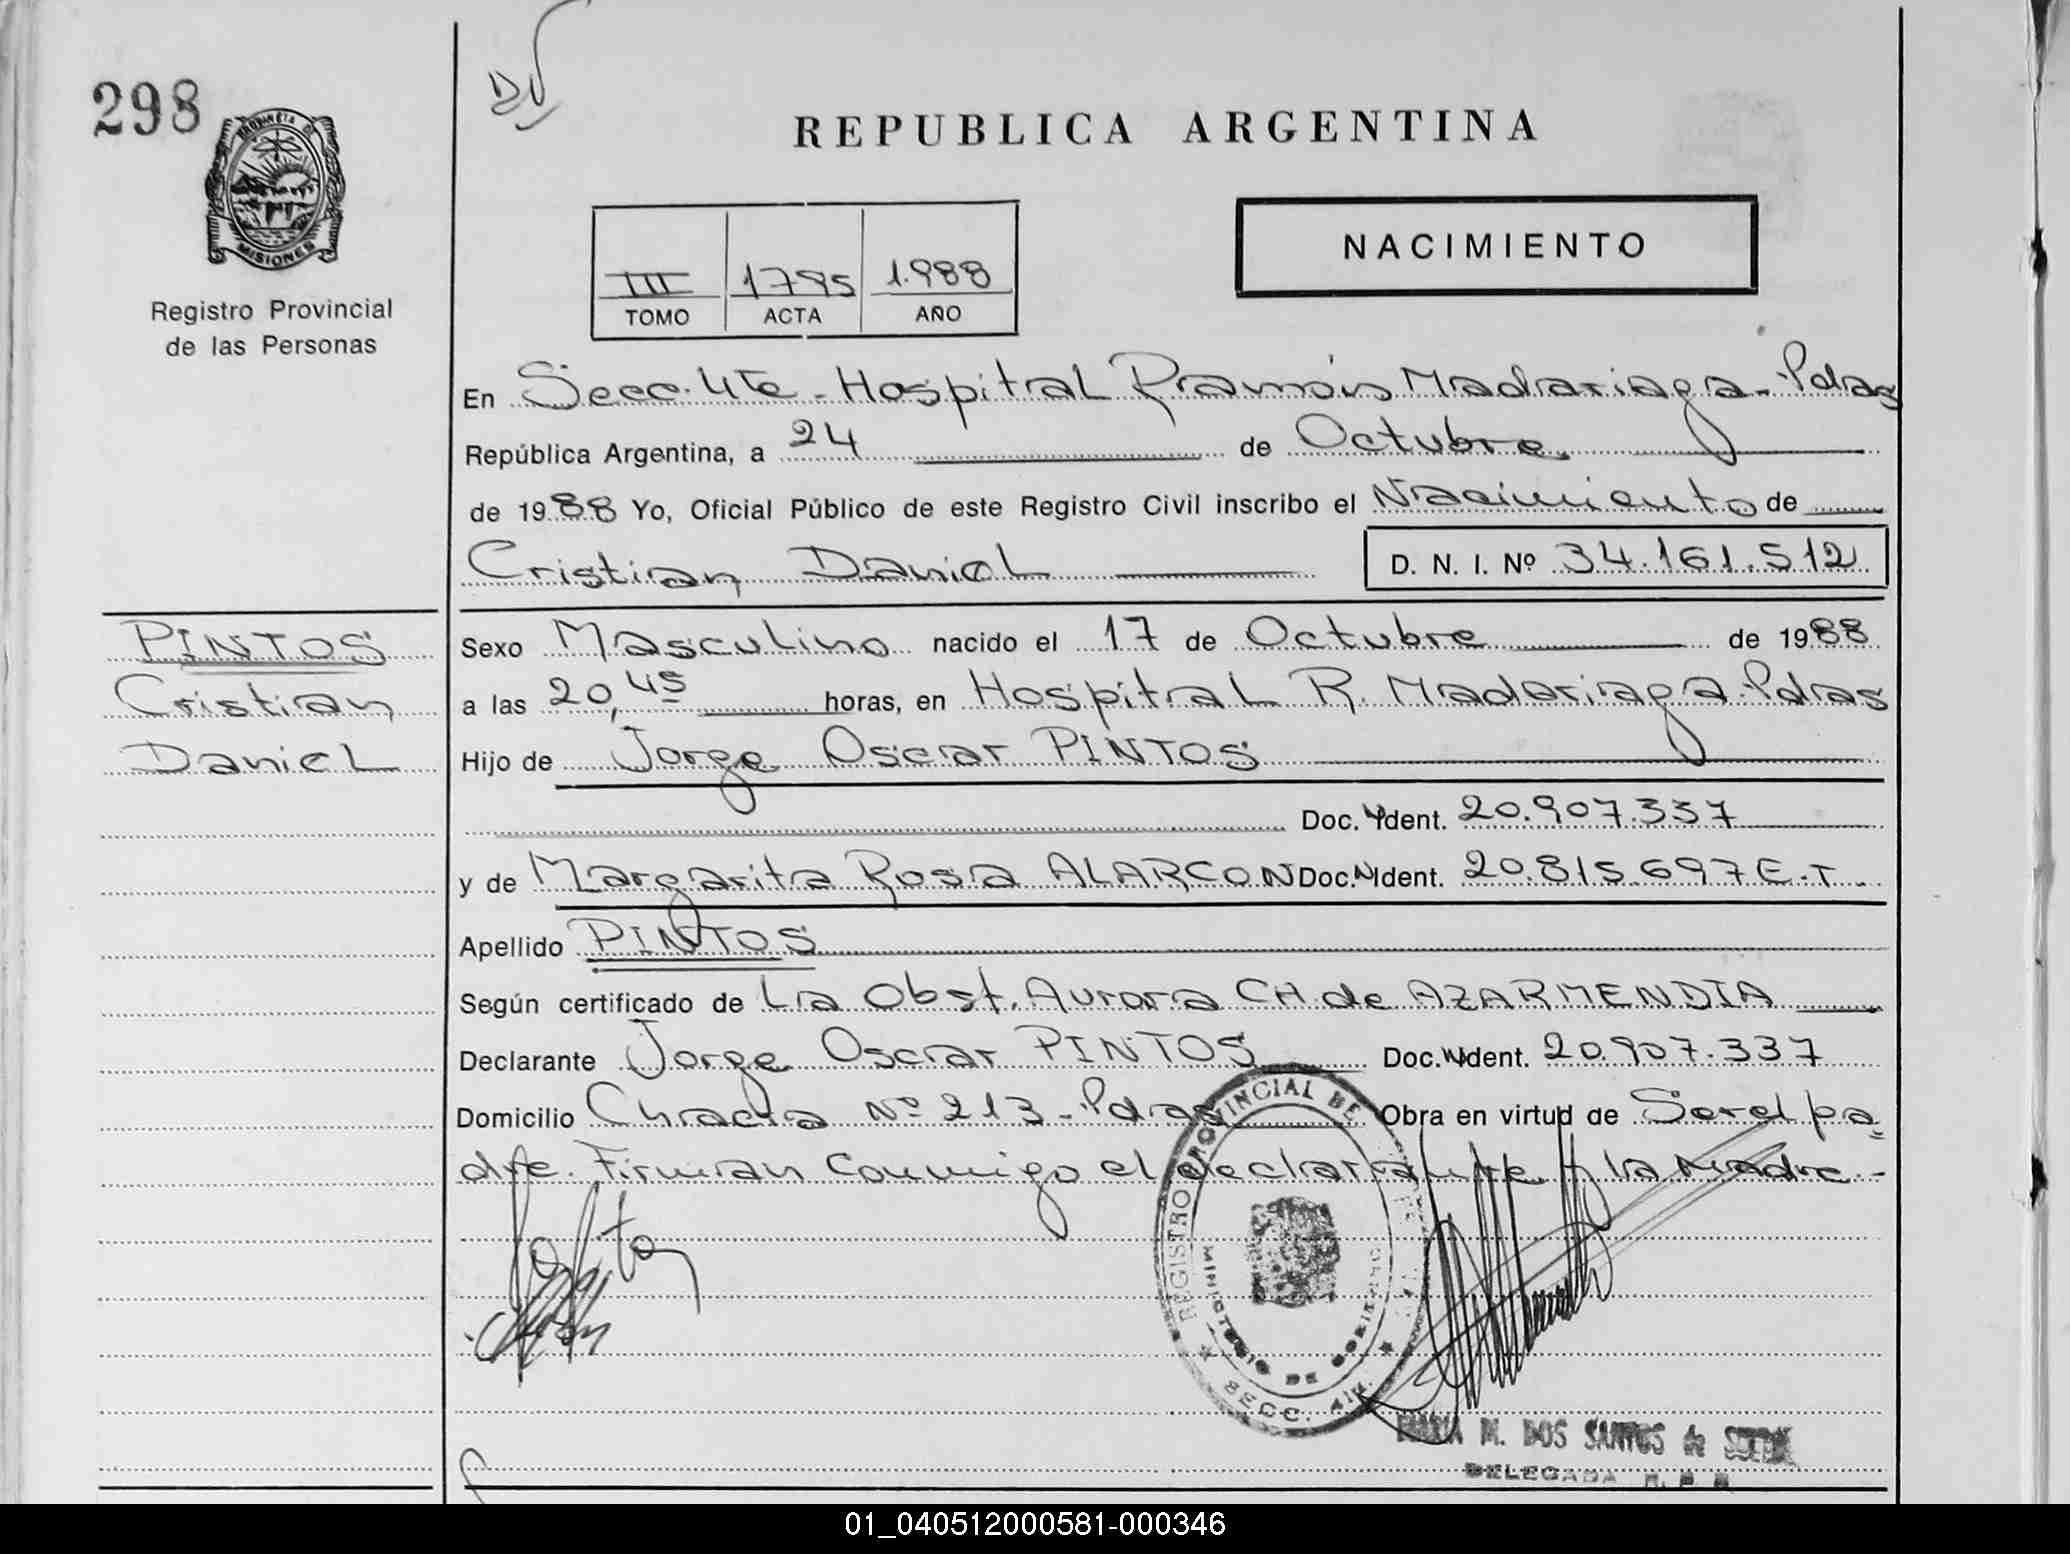 298
PROVINCIA DE
MISIONES
Registro Provincial
de las Personas
REPUBLICA ARGENTINA
NACIMIENTO
III 1795 1.988
TOMO ACTA AÑO
En Secc. 4ta - Hospital Ramón Madariaga - Pdas
República Argentina, a 24 de Octubre
de 1988 Yo, Oficial Público de este Registro Civil inscribo el Nacimiento de
Cristian Daniel D. N. I. Nº 34.161.512
PINTOS
Cristian
Daniel
Sexo Masculino nacido el 17 de Octubre de 1988
a las 20,45 horas, en Hospital R. Madariaga - Pdas
Hijo de Jorge Oscar PINTOS
Doc. Ident. 20.907.337
y de Margarita Rosa ALARCON Doc. N Ident. 20.815.697 E.T.
Apellido PINTOS
Según certificado de La Obst. Aurora CH. de AZARMENDIA
Declarante Jorge Oscar PINTOS Doc. N Ident. 20.907.337
Domicilio Chacra Nº 213 - Pdas Obra en virtud de Ser el pa-
dre. Firman conmigo el declarante y la Madre.-
REGISTRO PROVINCIAL DE
MINISTERIO DE GOBIERNO
SECC. 4ta.
M. DOS SANTOS de
DELEGADA R. P. P.
01_040512000581-000346